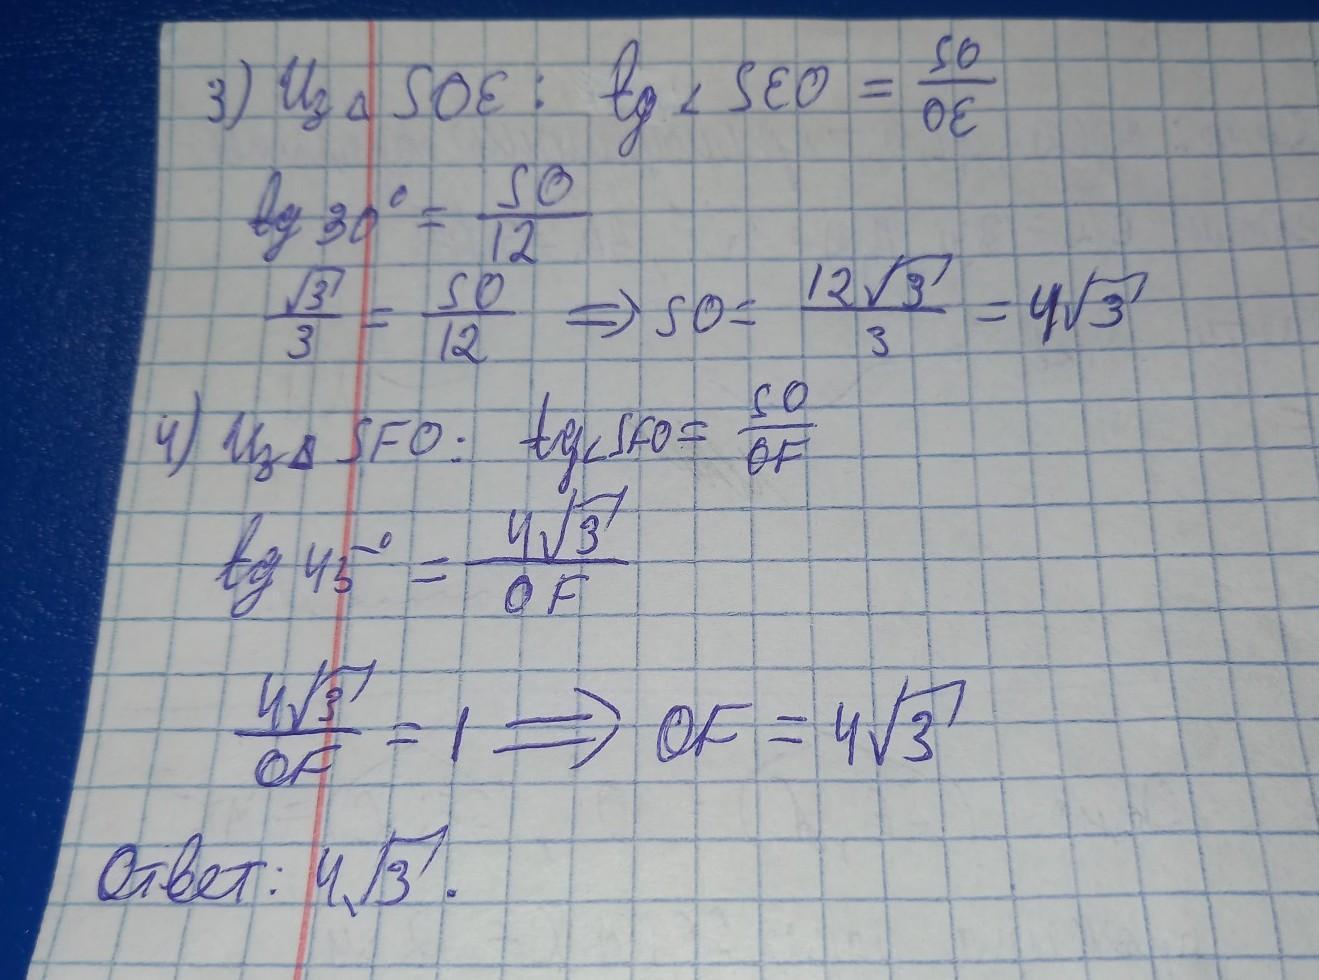 3) Из △ SOE: tg ∠ SEO = SO/OE
tg 30° = SO/12
√3/3 = SO/12 ⇒ SO = 12√3/3 = 4√3
4) Из △ SFO: tg ∠ SFO = SO/OF
tg 45° = 4√3/OF
4√3/OF = 1 ⇒ OF = 4√3
Ответ: 4√3.